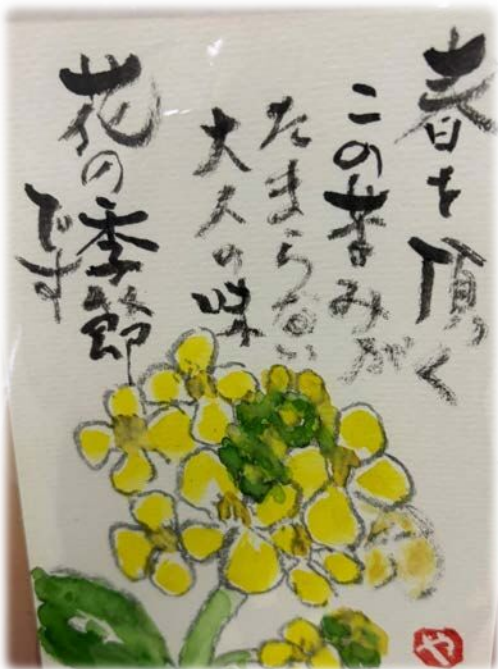 春を頂く
この苦みが
たまらない
大人の味
花の季節
です
や